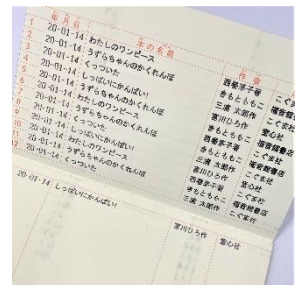 年月日 本の名前 作者
1 20-01-14 わたしのワンピース 西巻茅子著 こぐま社
2 20-01-14 うずらちゃんのかくれんぼ きもとももこ 福音館書店
3 20-01-14 くっついた 三浦 太郎作 こぐま社
4 20-01-14 しっぱいにかんぱい! 宮川ひろ作 童心社
5 20-01-14 わたしのワンピース 西巻茅子著 こぐま社
6 20-01-14 うずらちゃんのかくれんぼ きもとももこ 福音館書店
7 20-01-14 くっついた 三浦 太郎作 こぐま社
8 20-01-14 しっぱいにかんぱい! 宮川ひろ作 童心社
9 20-01-14 わたしのワンピース 西巻茅子著 こぐま社
10 20-01-14 うずらちゃんのかくれんぼ きもとももこ 福音館書店
11 20-01-14 くっついた 三浦 太郎作 こぐま社
20-01-14 しっぱいにかんぱい! 宮川ひろ作 童心社